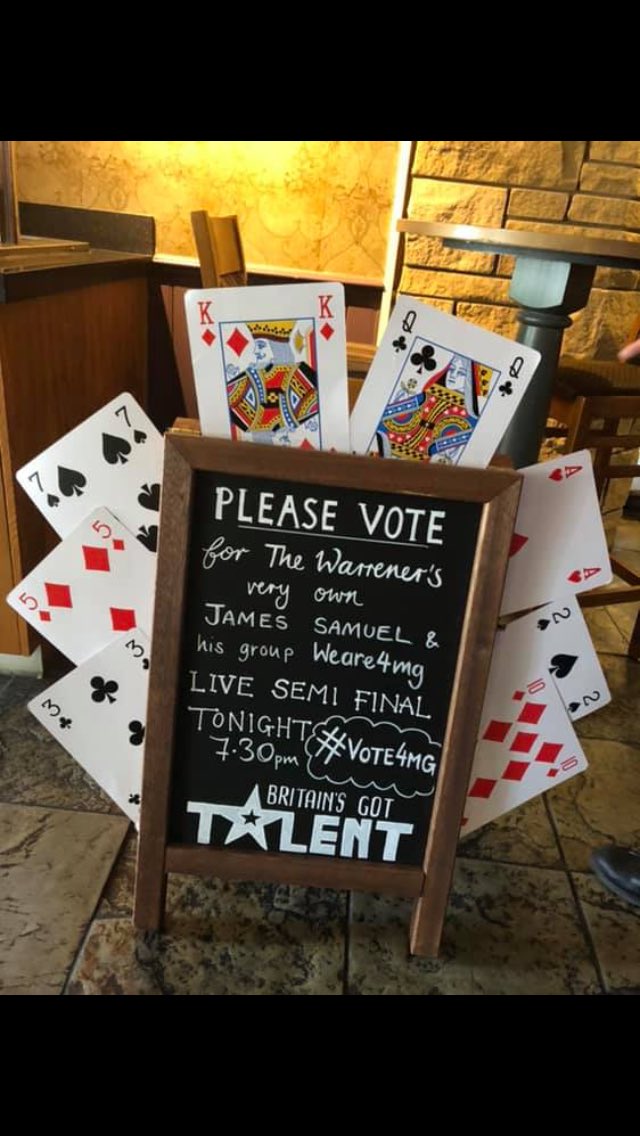 K K
Q Q
7 7
5 5
3 3
A A
2 2
10 10
PLEASE VOTE
for The Warrener's
very own
JAMES SAMUEL &
his group Weare4mg
LIVE SEMI FINAL
TONIGHT
7.30pm
#VOTE4MG
BRITAIN'S GOT
TALENT